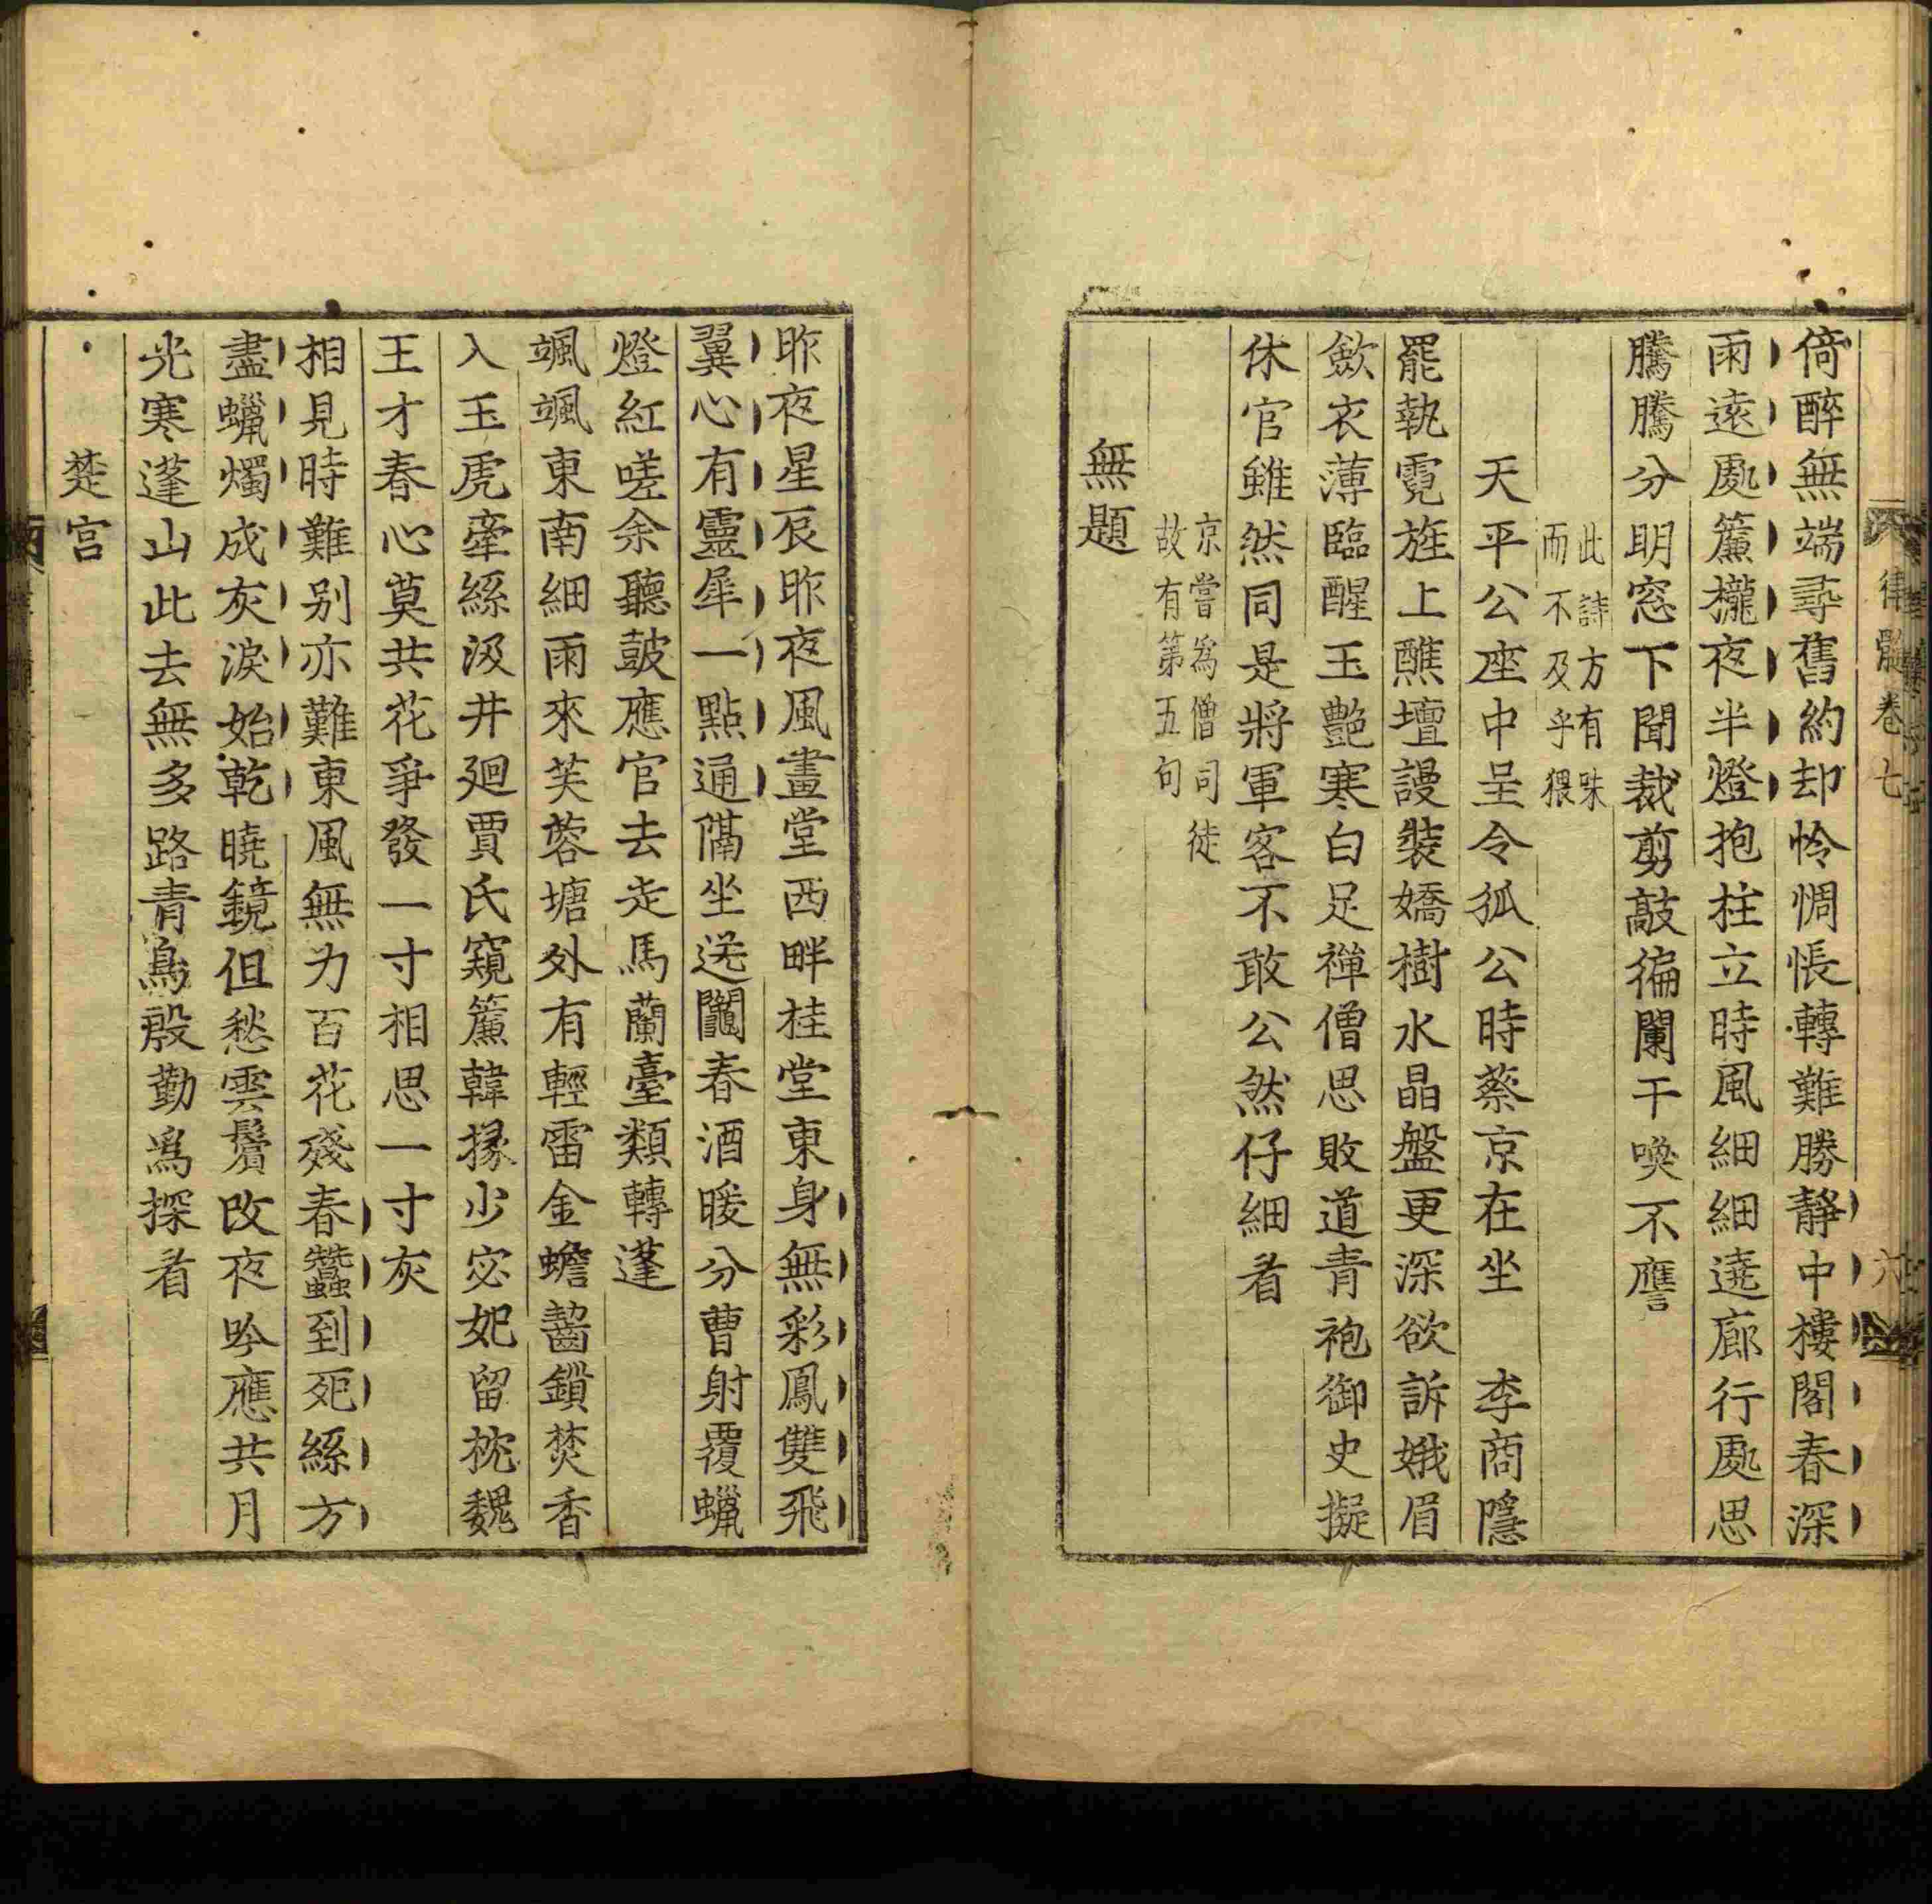 律髓卷七
六
倚醉無端尋舊約却怜惆悵轉難勝靜中樓閣春深
雨遠處簾櫳夜半燈抱柱立時風細細遶廊行處思
騰騰分明窓下聞裁剪敲徧闌干喚不譍
此詩方有味
而不及乎猥
天平公座中呈令狐公時蔡京在坐 李商隱
罷執霓旌上醮壇謾裝嬌樹水晶盤更深欲訴娥眉
斂衣薄臨醒玉艶寒白足禪僧思敗道青袍御史擬
休官雖然同是將軍客不敢公然仔細看
京嘗爲僧司徒
故有第五句
無題
昨夜星辰昨夜風畫堂西畔桂堂東身無彩鳳雙飛
翼心有靈犀一點通隔坐送鬮春酒暖分曹射覆蠟
燈紅嗟余聽鼓應官去走馬蘭臺類轉蓬
颯颯東南細雨來芙蓉塘外有輕雷金蟾齧鎖焚香
入玉虎牽絲汲井廻賈氏窺簾韓掾少宓妃留枕魏
王才春心莫共花爭發一寸相思一寸灰
相見時難别亦難東風無力百花殘春蠶到死絲方
盡蠟燭成灰淚始乾曉鏡但愁雲鬢改夜吟應共月
光寒蓬山此去無多路青鳥殷勤爲探看
楚宮